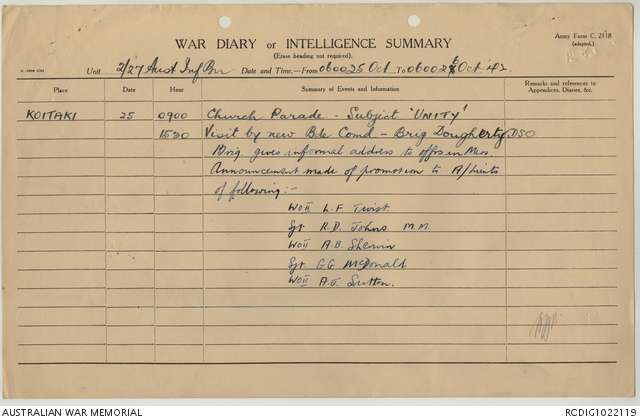 Army Form C. 2118
(adapted.)
WAR DIARY or INTELLIGENCE SUMMARY
(Erase heading not required).
Unit 2/27 Aust Inf Bn Date and Time.—From 060025 Oct To 060026 Oct 42.
Place Date Hour Summary of Events and Information Remarks and references to Appendices, Diaries, &c.
KOITAKI 25 0900 Church Parade - Subject 'UNITY'
1530 Visit by new Bde Comd - Brig Dougherty, DSO
Brig. gives informal address to offrs in Mess.
Announcement made of promotion to A/Lieuts
of following:-
WOII L.F. Twist.
Sgt R.D. Johns M.M.
WOII A.B. Sherwin
Sgt G.G. McDonald
WOII A.J. Sutton.
AUSTRALIAN WAR MEMORIAL RCDIG1022119